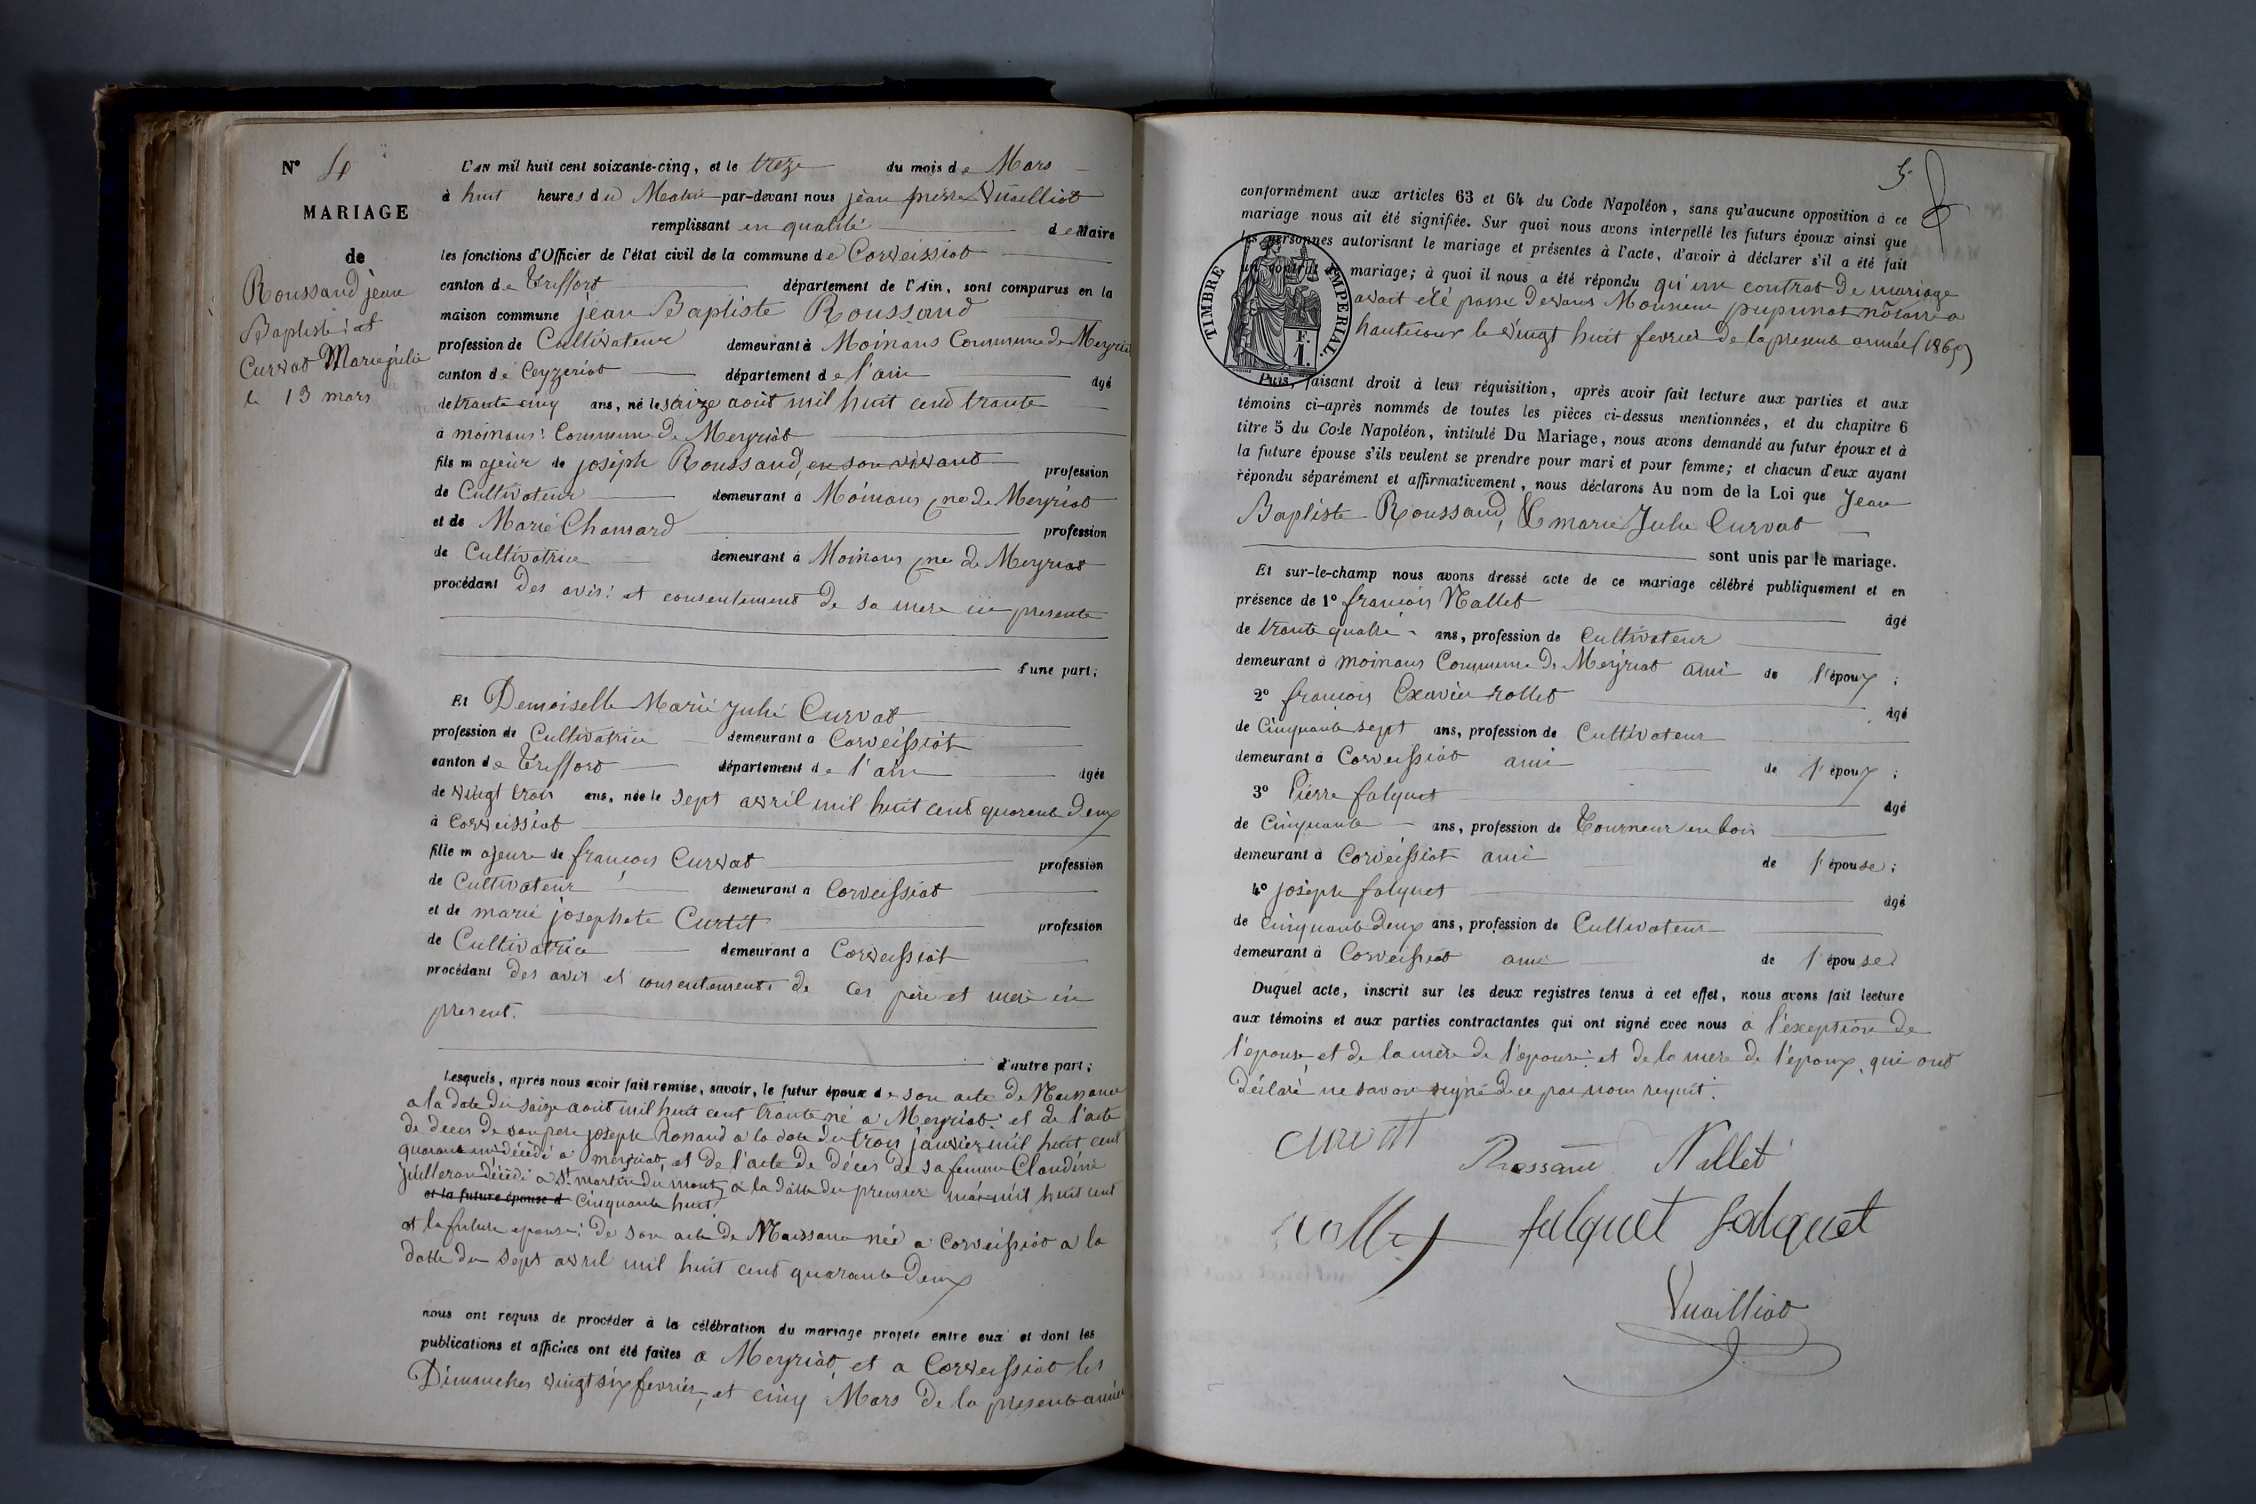 N° 4
MARIAGE
de
Roussand jean
Baptiste : et
Curvat Marie julie
le 13 mars
L'AN mil huit cent soixante-cinq, et le treze du mois de Mars
à huit heures du Matin par-devant nous jean pierre Vuailliat
remplissant en qualité de Maire
les fonctions d'Officier de l'état civil de la commune de Corveissiat
canton de Treffort département de l'Ain, sont comparus en la
maison commune jean Baptiste Roussand
profession de Cultivateur demeurant à Moinans Commune de Meyriat
canton de Ceyzeriat département de l'ain âgé
de trante cinq ans, né le saize août mil huit cend trante
à moinans : Commune de Meyriat
fils majeur de joséph Roussand, en son vivant profession
de Cultivateur demeurant à Moinans Cne de Meyriat
et de Marie Chanard profession
de Cultivatrice demeurant à Moinans Cne de Meyriat
procédant des avis : et consentement de sa mere ici presente
d'une part;
Et Demoiselle Marie Julie Curvat
profession de Cultivatrice demeurant à Corveissiat
canton de Treffort département de l'ain âgée
de vingt trois ans, née le sept avril mil huit cent quarente deux
à Corveissiat
fille majeure de françois Curvat profession
de Cultivateur demeurant à Corveissiat
et de marie josephete Curtit profession
de Cultivatrice demeurant à Corveissiat
procédant des avis et consentements de ces père et mere ici
present.
d'autre part;
Lesquels, après nous avoir fait remise, savoir, le futur époux de son acte de Naissance
a la date du saize août mil huit cent trante né a Meyriat : et de l'acte
de deces de son pere joseph Ronaud a la date du trois janvier mil huit cent
quarante un décédé a meyriat, et de l'acte de déces de sa femme Claudine
juilleron décédé a St martin du mont, a la datte du premier mai mil huit cent
et la future épouse d Cinquante huit
et la future epouse : de son acte de Naissance née a Corveissiat a la
datte du sept avril mil huit cent quarante deux
nous ont requis de procéder à la célébration du mariage projeté entre eux et dont les
publications et affiches ont été faites a Meyriat, et a Corveissiat les
Dimanches vingt six fevrier, et cinq Mars de la presente année
5.
conformément aux articles 63 et 64 du Code Napoléon, sans qu'aucune opposition à ce
mariage nous ait été signifiée. Sur quoi nous avons interpellé les futurs époux ainsi que
les personnes autorisant le mariage et présentes à l'acte, d'avoir à déclarer s'il a été fait
un contrat de mariage; à quoi il nous a été répondu qu'un contrat de mariage
avait été passé devant Monsieur pupunat nôtaire a
hautecour le vingt huit fevrier de la presente année (1865)
TIMBRE IMPERIAL.
F.
1.
Puis, faisant droit à leur réquisition, après avoir fait lecture aux parties et aux
témoins ci-après nommés de toutes les pièces ci-dessus mentionnées, et du chapitre 6
titre 5 du Code Napoléon, intitulé Du Mariage, nous avons demandé au futur époux et à
la future épouse s'ils veulent se prendre pour mari et pour femme; et chacun d'eux ayant
répondu séparément et affirmativement, nous déclarons Au nom de la Loi que Jean
Baptiste Roussand, & marie Julie Curvat
sont unis par le mariage.
Et sur-le-champ nous avons dressé acte de ce mariage célébré publiquement et en
présence de 1° françois Nallet âgé
de trante quatre ans, profession de Cultivateur
demeurant à moinans Commune de Meyriat ami de l'époux ;
2° françois Exavier rollet âgé
de Cinquante sept ans, profession de Cultivateur
demeurant à Corveissiat ami de l'époux ;
3° Pierre falquet âgé
de Cinquante ans, profession de Tourneur en bois
demeurant à Corveissiat ami de l'épouse ;
4° joseph falquet âgé
de cinquante deux ans, profession de Cultivateur
demeurant à Corveissiat ami de l'épouse.
Duquel acte, inscrit sur les deux registres tenus à cet effet, nous avons fait lecture
aux témoins et aux parties contractantes qui ont signé avec nous à l'exeption de
l'epouse, et de la mère de l'epouse : et de la mere de l'epoux, qui ont
déclaré ne savoir signé de ce par nous requit.
curvat
Rossand Nallet
rollet falquet falquet
Vuailliat